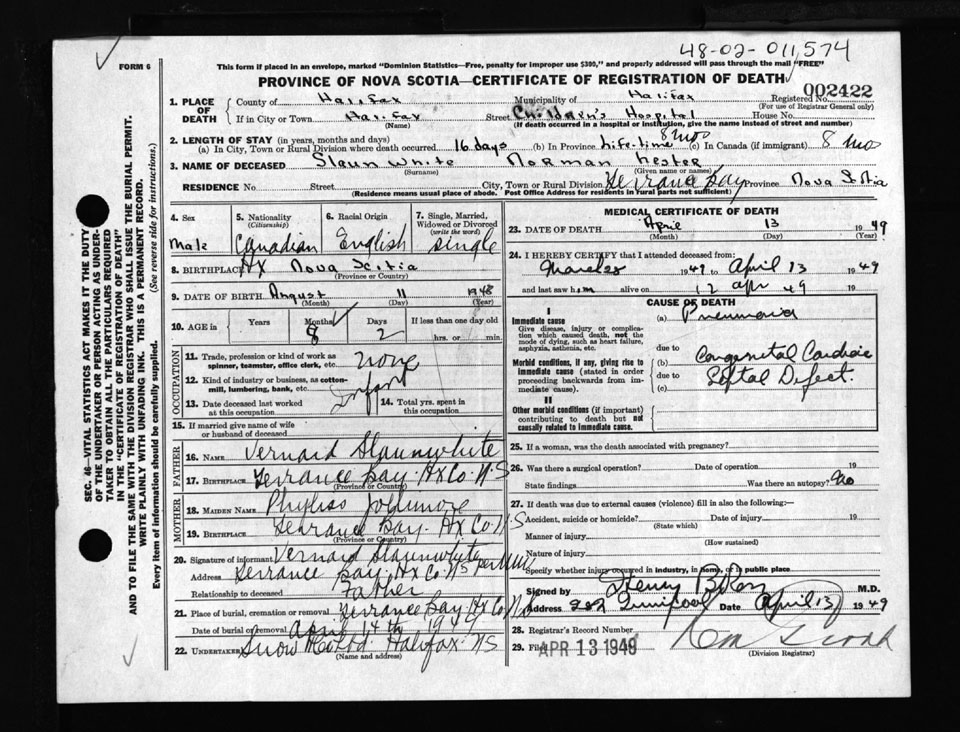 48-02-011,574
FORM 6
This form if placed in an envelope, marked "Dominion Statistics—Free, penalty for improper use $300," and properly addressed will pass through the mail "FREE"
PROVINCE OF NOVA SCOTIA—CERTIFICATE OF REGISTRATION OF DEATH
002422
1. PLACE OF DEATH County of Halifax Municipality of Halifax Registered No. (For use of Registrar General only)
If in City or Town Halifax (Name) Street Children's Hospital House No.
(If death occurred in a hospital or institution, give the name instead of street and number)
2. LENGTH OF STAY (in years, months and days)
(a) In City, Town or Rural Division where death occurred 16 days (b) In Province Life-time 8 mos (c) In Canada (if immigrant) 8 mos
3. NAME OF DECEASED Slaun White Norman Hester
(Surname) (Given name or names)
RESIDENCE No. Street City, Town or Rural Division Terrance Bay Province Nova Scotia
(Residence means usual place of abode. Post Office Address for residents in rural parts not sufficient)
4. Sex Male
5. Nationality (Citizenship) Canadian
6. Racial Origin English
7. Single, Married, Widowed or Divorced (write the word) Single
8. BIRTHPLACE Hx Nova Scotia
(Province or Country)
9. DATE OF BIRTH August 11 1948
(Month) (Day) (Year)
10. AGE in Years Months 8 Days 2 If less than one day old hrs. or min.
OCCUPATION
11. Trade, profession or kind of work as spinner, teamster, office clerk, etc. none
12. Kind of industry or business, as cotton-mill, lumbering, bank, etc. Infant
13. Date deceased last worked at this occupation
14. Total yrs. spent in this occupation
15. If married give name of wife or husband of deceased
FATHER
16. NAME Vernard Slaunwhite
17. BIRTHPLACE Terrance Bay Hx Co. N.S
(Province or Country)
MOTHER
18. MAIDEN NAME Jollimore
19. BIRTHPLACE Terrance Bay Hx Co. N.S
(Province or Country)
20. Signature of informant Vernard Slaunwhite per
Address Terrance Bay Hx Co. NS
Relationship to deceased Father
21. Place of burial, cremation or removal Terrance Bay Hx Co N.S
Date of burial or removal April 14th 1949
22. UNDERTAKER Snow Halifax NS
(Name and address)
MEDICAL CERTIFICATE OF DEATH
23. DATE OF DEATH April 13 1949
(Month) (Day) (Year)
24. I HEREBY CERTIFY that I attended deceased from:
March 28 1949 to April 13 1949
and last saw him alive on 12 Apr 49 19
CAUSE OF DEATH
I
Immediate cause
Give disease, injury or complication which caused death, not the mode of dying, such as heart failure, asphyxia, asthenia, etc.
(a) Pneumonia
due to
Morbid conditions, if any, giving rise to immediate cause (stated in order proceeding backwards from immediate cause).
(b) Congenital Cardiac
due to Septal Defect.
(c)
II
Other morbid conditions (if important) contributing to death but not causally related to immediate cause.
25. If a woman, was the death associated with pregnancy?
26. Was there a surgical operation? Date of operation 19
State findings Was there an autopsy? No
27. If death was due to external causes (violence) fill in also the following:—
Accident, suicide or homicide? Date of injury 19
(State which)
Manner of injury
(How sustained)
Nature of injury
Specify whether injury occurred in industry, in home, or in public place
Signed by Henry B Ross M.D.
Address 282 Quinpool Date April 13 1949
28. Registrar's Record Number
29. Filed APR 13 1949
(Division Registrar)
SEC. 46—VITAL STATISTICS ACT MAKES IT THE DUTY OF THE UNDERTAKER OR PERSON ACTING AS UNDERTAKER TO OBTAIN ALL THE PARTICULARS REQUIRED IN THE "CERTIFICATE OF REGISTRATION OF DEATH" AND TO FILE THE SAME WITH THE DIVISION REGISTRAR WHO SHALL ISSUE THE BURIAL PERMIT.
WRITE PLAINLY WITH UNFADING INK. THIS IS A PERMANENT RECORD.
Every item of information should be carefully supplied. (See reverse side for instructions.)